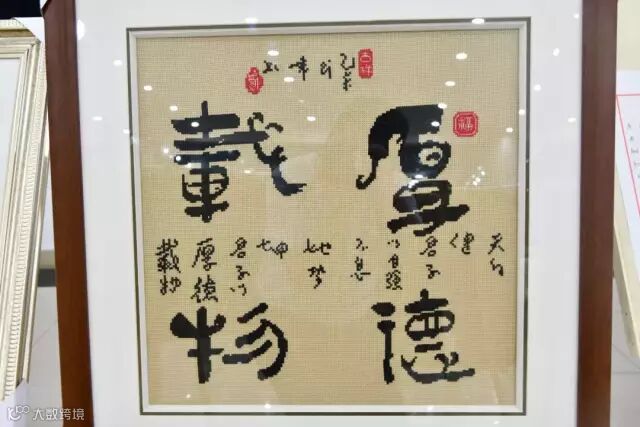 厚德
載物
天行
健
君子
以自强
不息
地势
坤
君子以
厚德
載物
吉祥
福
大数跨境